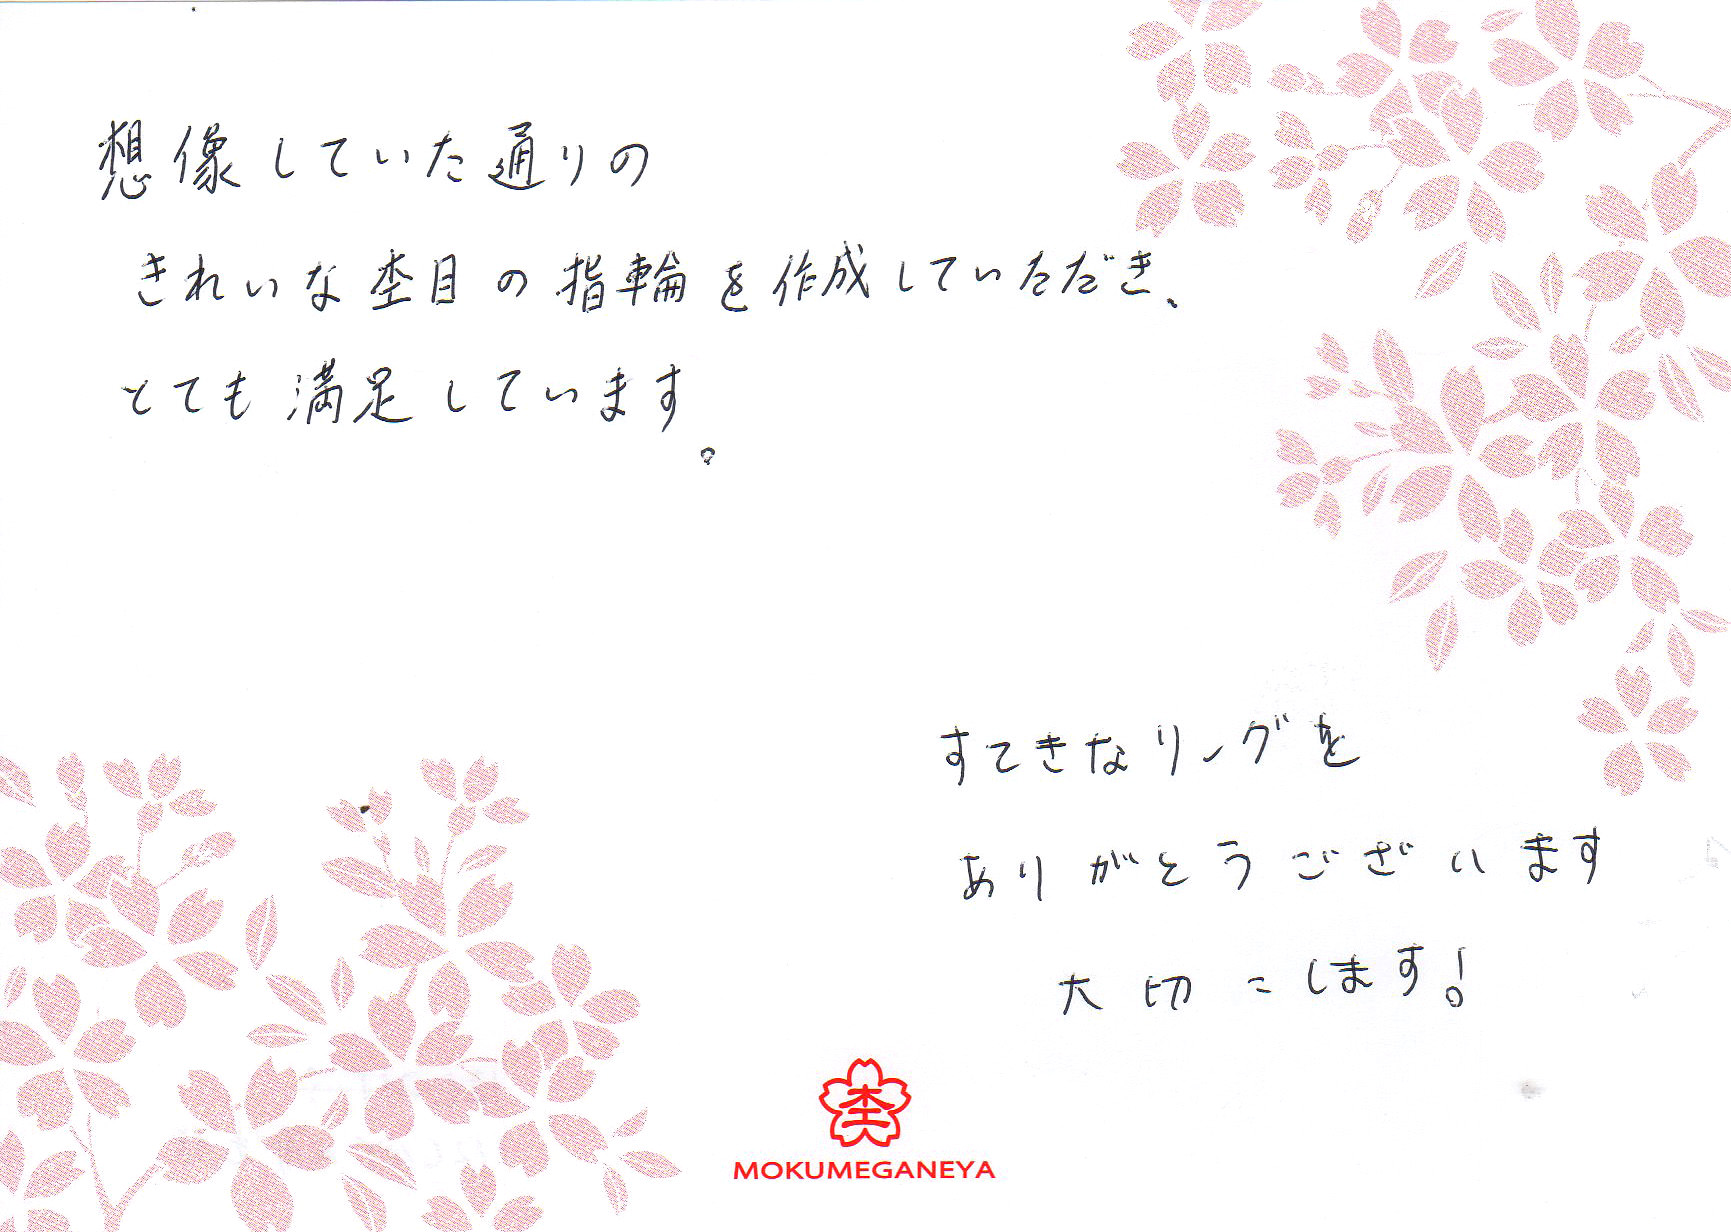 想像していた通りの
きれいな杢目の指輪を作成していただき、
とても満足しています。
すてきなリングを
ありがとうございます
大切にします!
杢
MOKUMEGANEYA